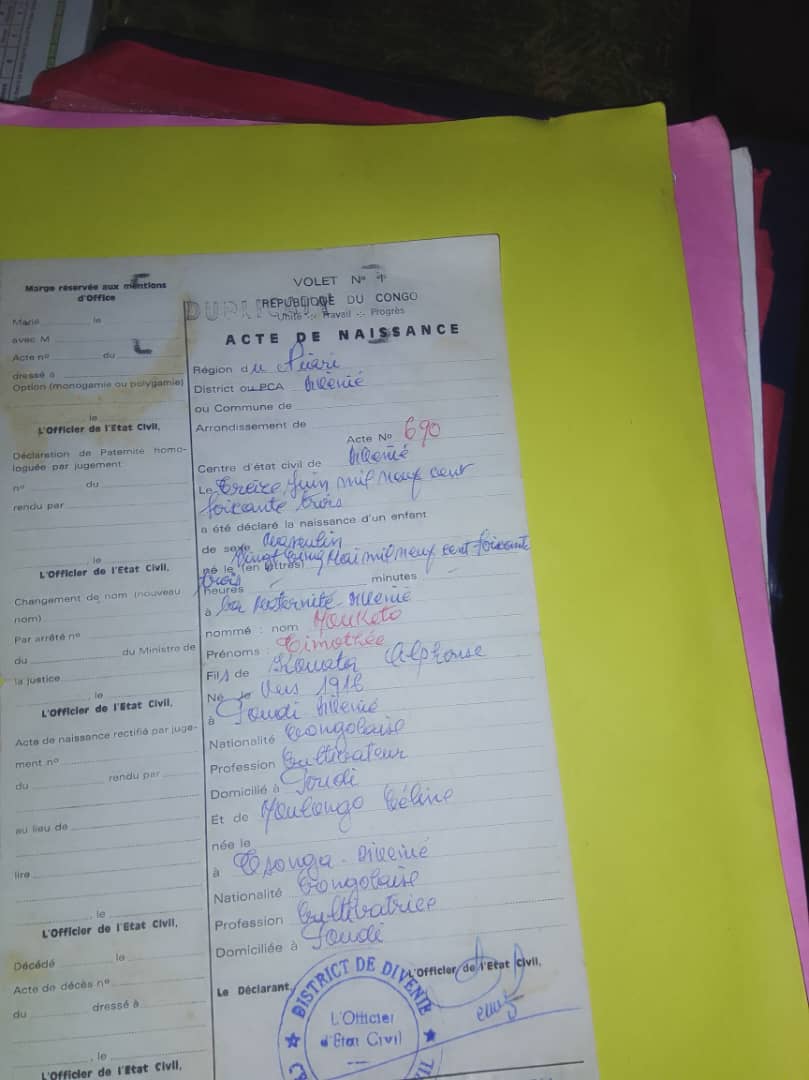 Marge réservée aux mentions
d'Office
Marié le
avec M
Acte nº du
dressé à
Option (monogamie ou polygamie)
le
L'Officier de l'Etat Civil,
Déclaration de Paternité homo-
loguée par jugement:
nº du
rendu par
, le
L'Officier de l'Etat Civil,
Changement de nom (nouveau
nom)
Par arrêté nº
du du Ministre de
la justice
, le
L'Officier de l'Etat Civil,
Acte de naissance rectifié par juge-
ment nº
du rendu par
au lieu de
lire
, le
L'Officier de l'Etat Civil,
Décédé le
Acte de décès nº
du dressé à
, le
L'Officier de l'Etat Civil,
VOLET Nº 1
RÉPUBLIQUE DU CONGO
Unité Travail Progrès
ACTE DE NAISSANCE
Région du Niari
District ou PCA Divenié
ou Commune de
Arrondissement de
Acte No 690
Centre d'état civil de Divenié
Le Treize Juin mil neuf cent
soixante trois
a été déclaré la naissance d'un enfant
de sexe Masculin
né le (en lettres) Vingt Cinq Mai mil neuf cent soixante
trois
heures minutes
à La Maternité Divenié
nommé : nom Mouketo
Prénoms : Timothée
Fils de Alphonse
Né le Vers 1918
à Divenié
Nationalité Congolaise
Profession Cultivateur
Domicilié à
Et de Céline
née le
à Tsonga - Divenié
Nationalité Congolaise
Profession Cultivatrice
Domiciliée à
Le Déclarant, L'Officier de l'Etat Civil,
DISTRICT DE DIVENIE
L'Officier
d'Etat Civil